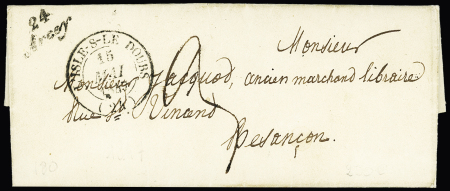 24
Arcey
ISLE-S-LE DOUBS
15
MAI
(24)
Monsieur
Monsieur Jacquod, ancien marchand libraire
Rue St Vincent
Besançon.